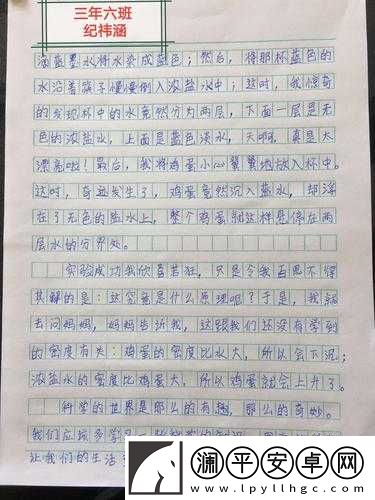 三年六班
纪祎涵
滴蓝墨水将水染成蓝色；然后，将那杯蓝色的
水沿着筷子慢慢倒入浓盐水中；这时，我惊奇
的发现杯中的水竟然分为两层，下面一层是无
色的浓盐水，上面是蓝色淡水，天啊，真是太
漂亮啦！最后，我将鸡蛋小心翼翼地放入杯中。
这时，奇迹发生了，鸡蛋竟然沉入盐水，却浮
在了无色的盐水上，整个鸡蛋就这样悬停在两
层水的分界处。
实验成功我欣喜若狂，只是令我百思不得
其解的是：这究竟是什么原理呢？于是，我就
去问妈妈，妈妈告诉我，这跟我们还没有学到
的密度有关：鸡蛋的密度比水大，所以会下沉；
浓盐水的密度比鸡蛋大，所以鸡蛋就会上升了。
科学的世界是那么的有趣，那么的奇妙。
我们应该多学习
让我们的生活
澜平安卓网
www.lpyllhcj.com